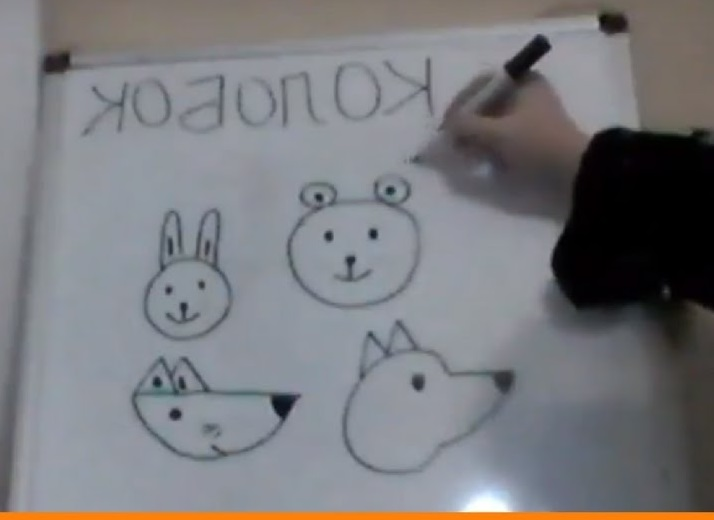 КОЛОБОК